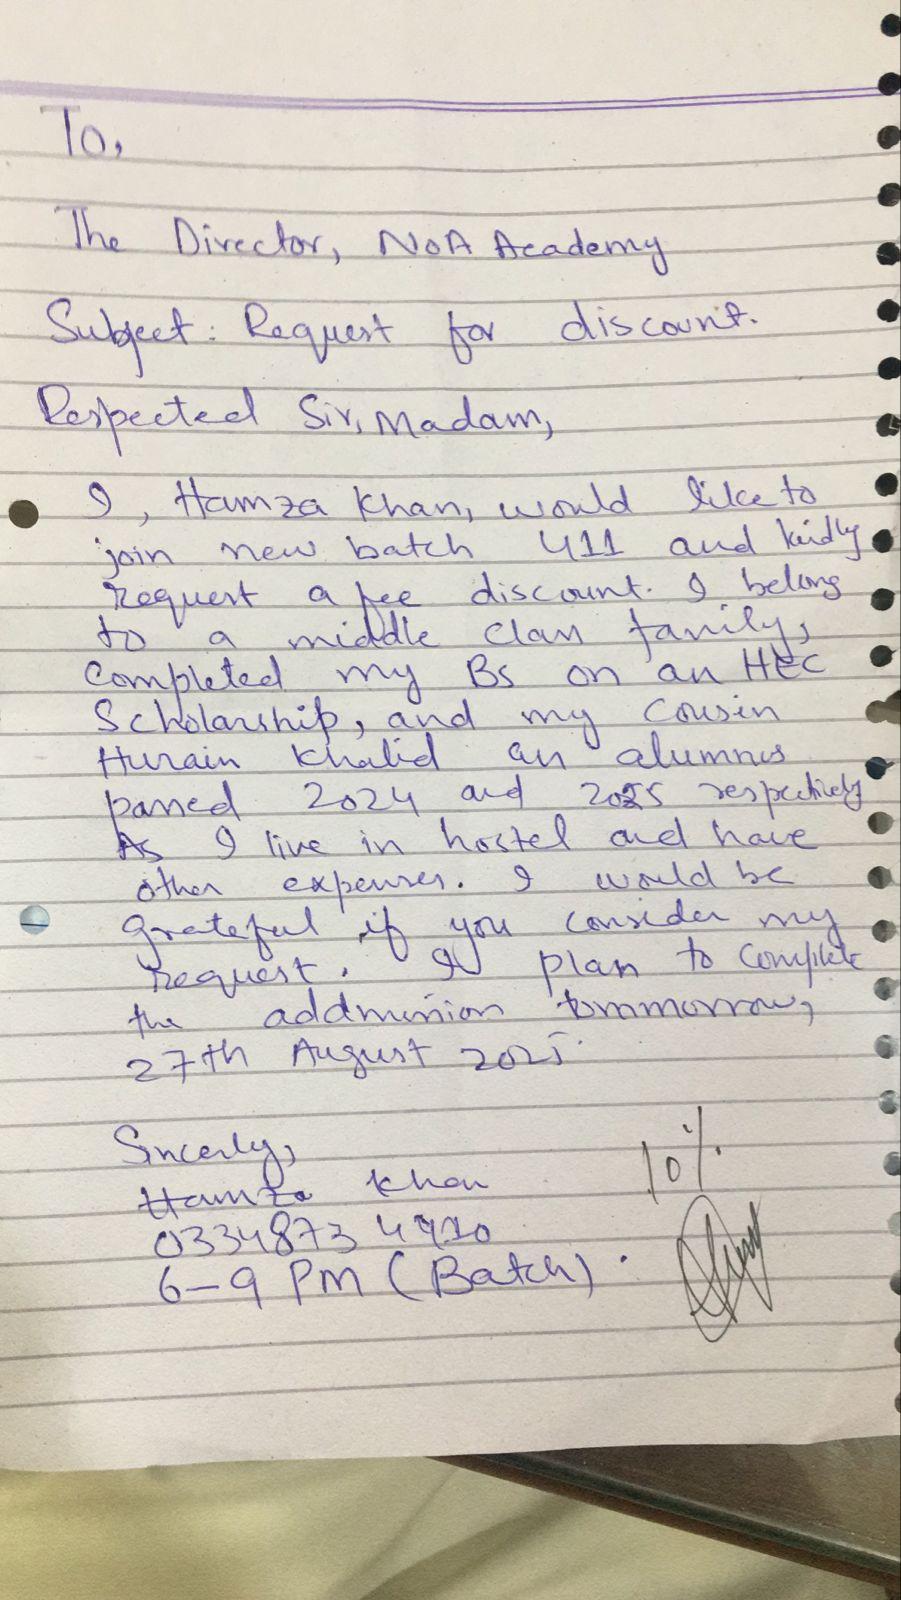 To,
The Director, NOA Academy
Subject: Request for discount.
Respected Sir, Madam,
I, Hamza Khan, would like to
join new batch 411 and kindly
request a fee discount. I belong
to a middle class family,
completed my BS on an HEC
Scholarship, and my cousin
Khalid an alumnus
passed 2024 and 2025 respectively
As I live in hostel and have
other expenses. I would be
grateful if you consider my
request. I plan to complete
the addmission tommorrow,
27th August 2025.
Sincerly,
Hamza Khan
10%
6-9 PM (Batch).